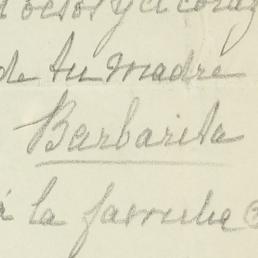 besos y el coraz
de tu madre
Barbarita
a la familia